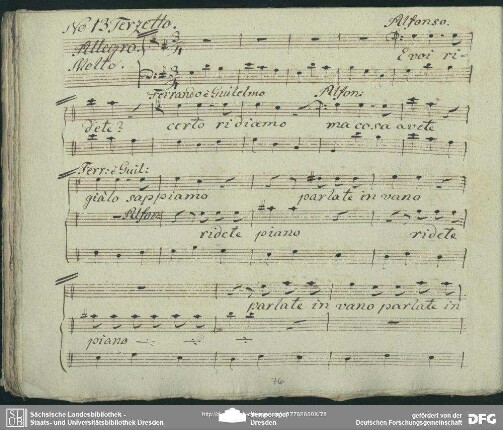 No 13 Terzetto. Alfonso.
Allegro
Molto. E voi ri-
Ferrando è Guilelmo Alfon:
dete? certo ridiamo ma cosa avete
Ferr: è Guil:
giàlo sappiamo parlate in vano
Alfon:
ridete piano ridete
parlate in vano parlate in
piano
76
Sächsische Landesbibliothek -
Staats- und Universitätsbibliothek Dresden
gefördert von der
Deutschen Forschungsgemeinschaft
DFG